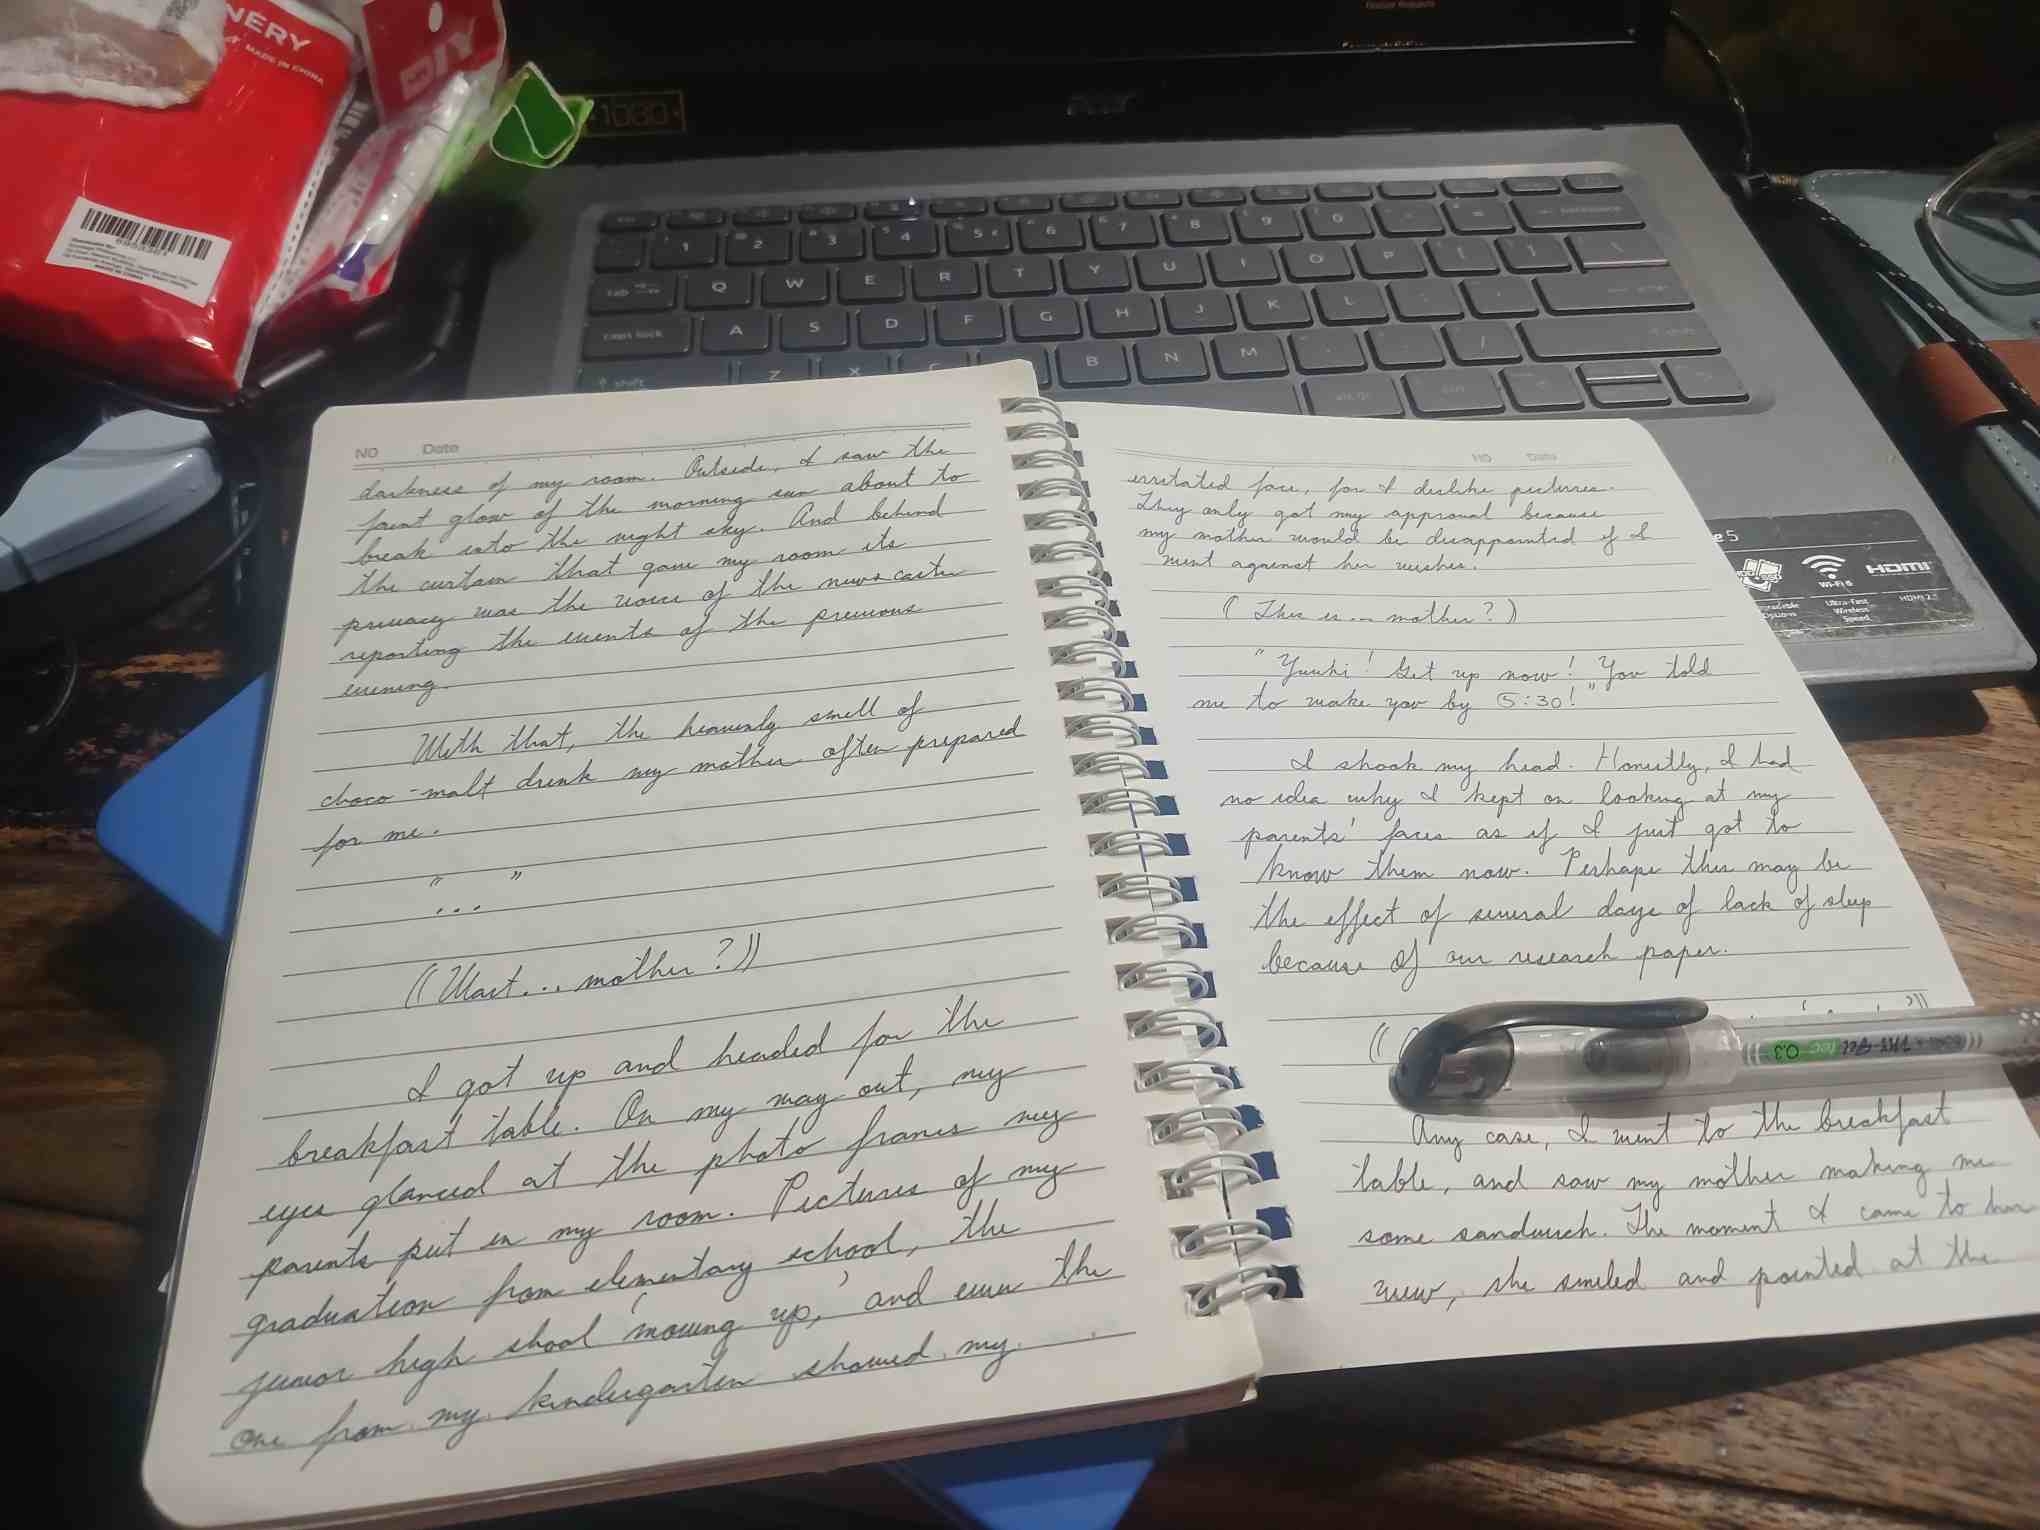 NERY
MADE IN CHINA
DIY
1080
acer
1 2 3 4 5 6 7 8 9 0
tab Q W E R T Y U I O P [ ]
caps lock A S D F G H J K L
shift Z X C B N M /
NO Date
darkness of my room. Outside, I saw the
faint glow of the morning sun about to
break into the night sky. And behind
the curtain that gave my room its
privacy was the voice of the newscaster
reporting the events of the previous
evening.
With that, the heavenly smell of
choco-malt drink my mother often prepared
for me.
" "
...
((Wait... mother?))
I got up and headed for the
breakfast table. On my way out, my
eyes glanced at the photo frames my
parents put in my room. Pictures of my
graduation from elementary school, the
junior high shool 'moving up,' and even the
one from my kindergarten showed my
NO Date
irritated face, for I dislike pictures.
They only got my approval because
my mother would be disappointed if I
went against her wishes.
(This is... mother?)
"Yuuki! Get up now! You told
me to wake you by 5:30!"
I shook my head. Honestly, I had
no idea why I kept on looking at my
parents' faces as if I just got to
know them now. Perhaps this may be
the effect of several days of lack of sleep
because of our research paper.
((
Any case, I went to the breakfast
table, and saw my mother making me
some sandwich. The moment I came to her
view, she smiled and pointed at the
0.3
e 5
Wi-Fi 6
Ultra-Fast
Wireless
Speed
HDMI